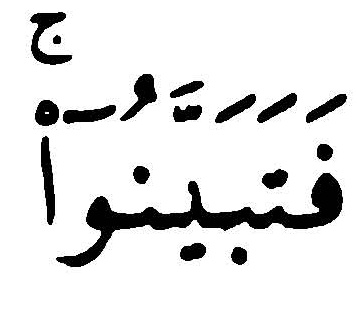 فَتَبَيَّنُوا۟ۚ